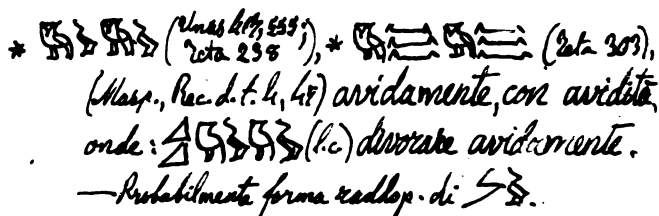 * (Unas 
Teta 238), * (Teta 303),
(Masp., Rec. d. t. 4, 48) avidamente, con avidità,
onde: (l.c.) divorare avidamente.
— Probabilmente forma raddop. di